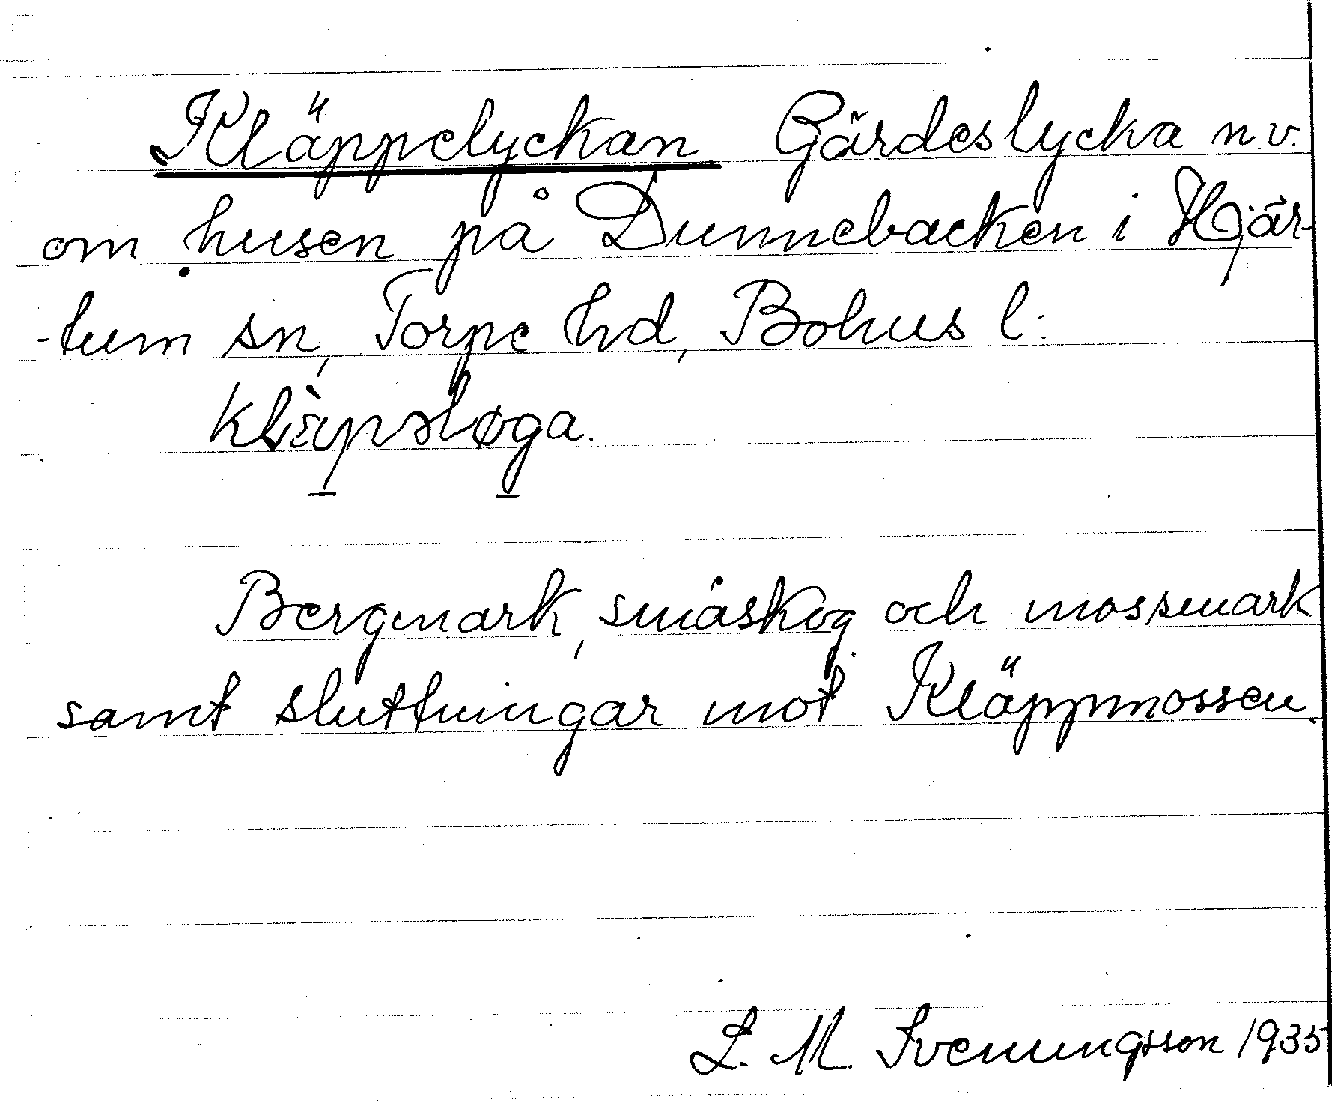 Kläppelyckan Gärdeslycka n.v.
om husen på Dunnebacken i Hjär-
-tum sn, Torpe hd, Bohus l.
Bergmark, småskog och mossmark
samt sluttningar mot Kläppmossen.
L. M. Svenungsson 1935